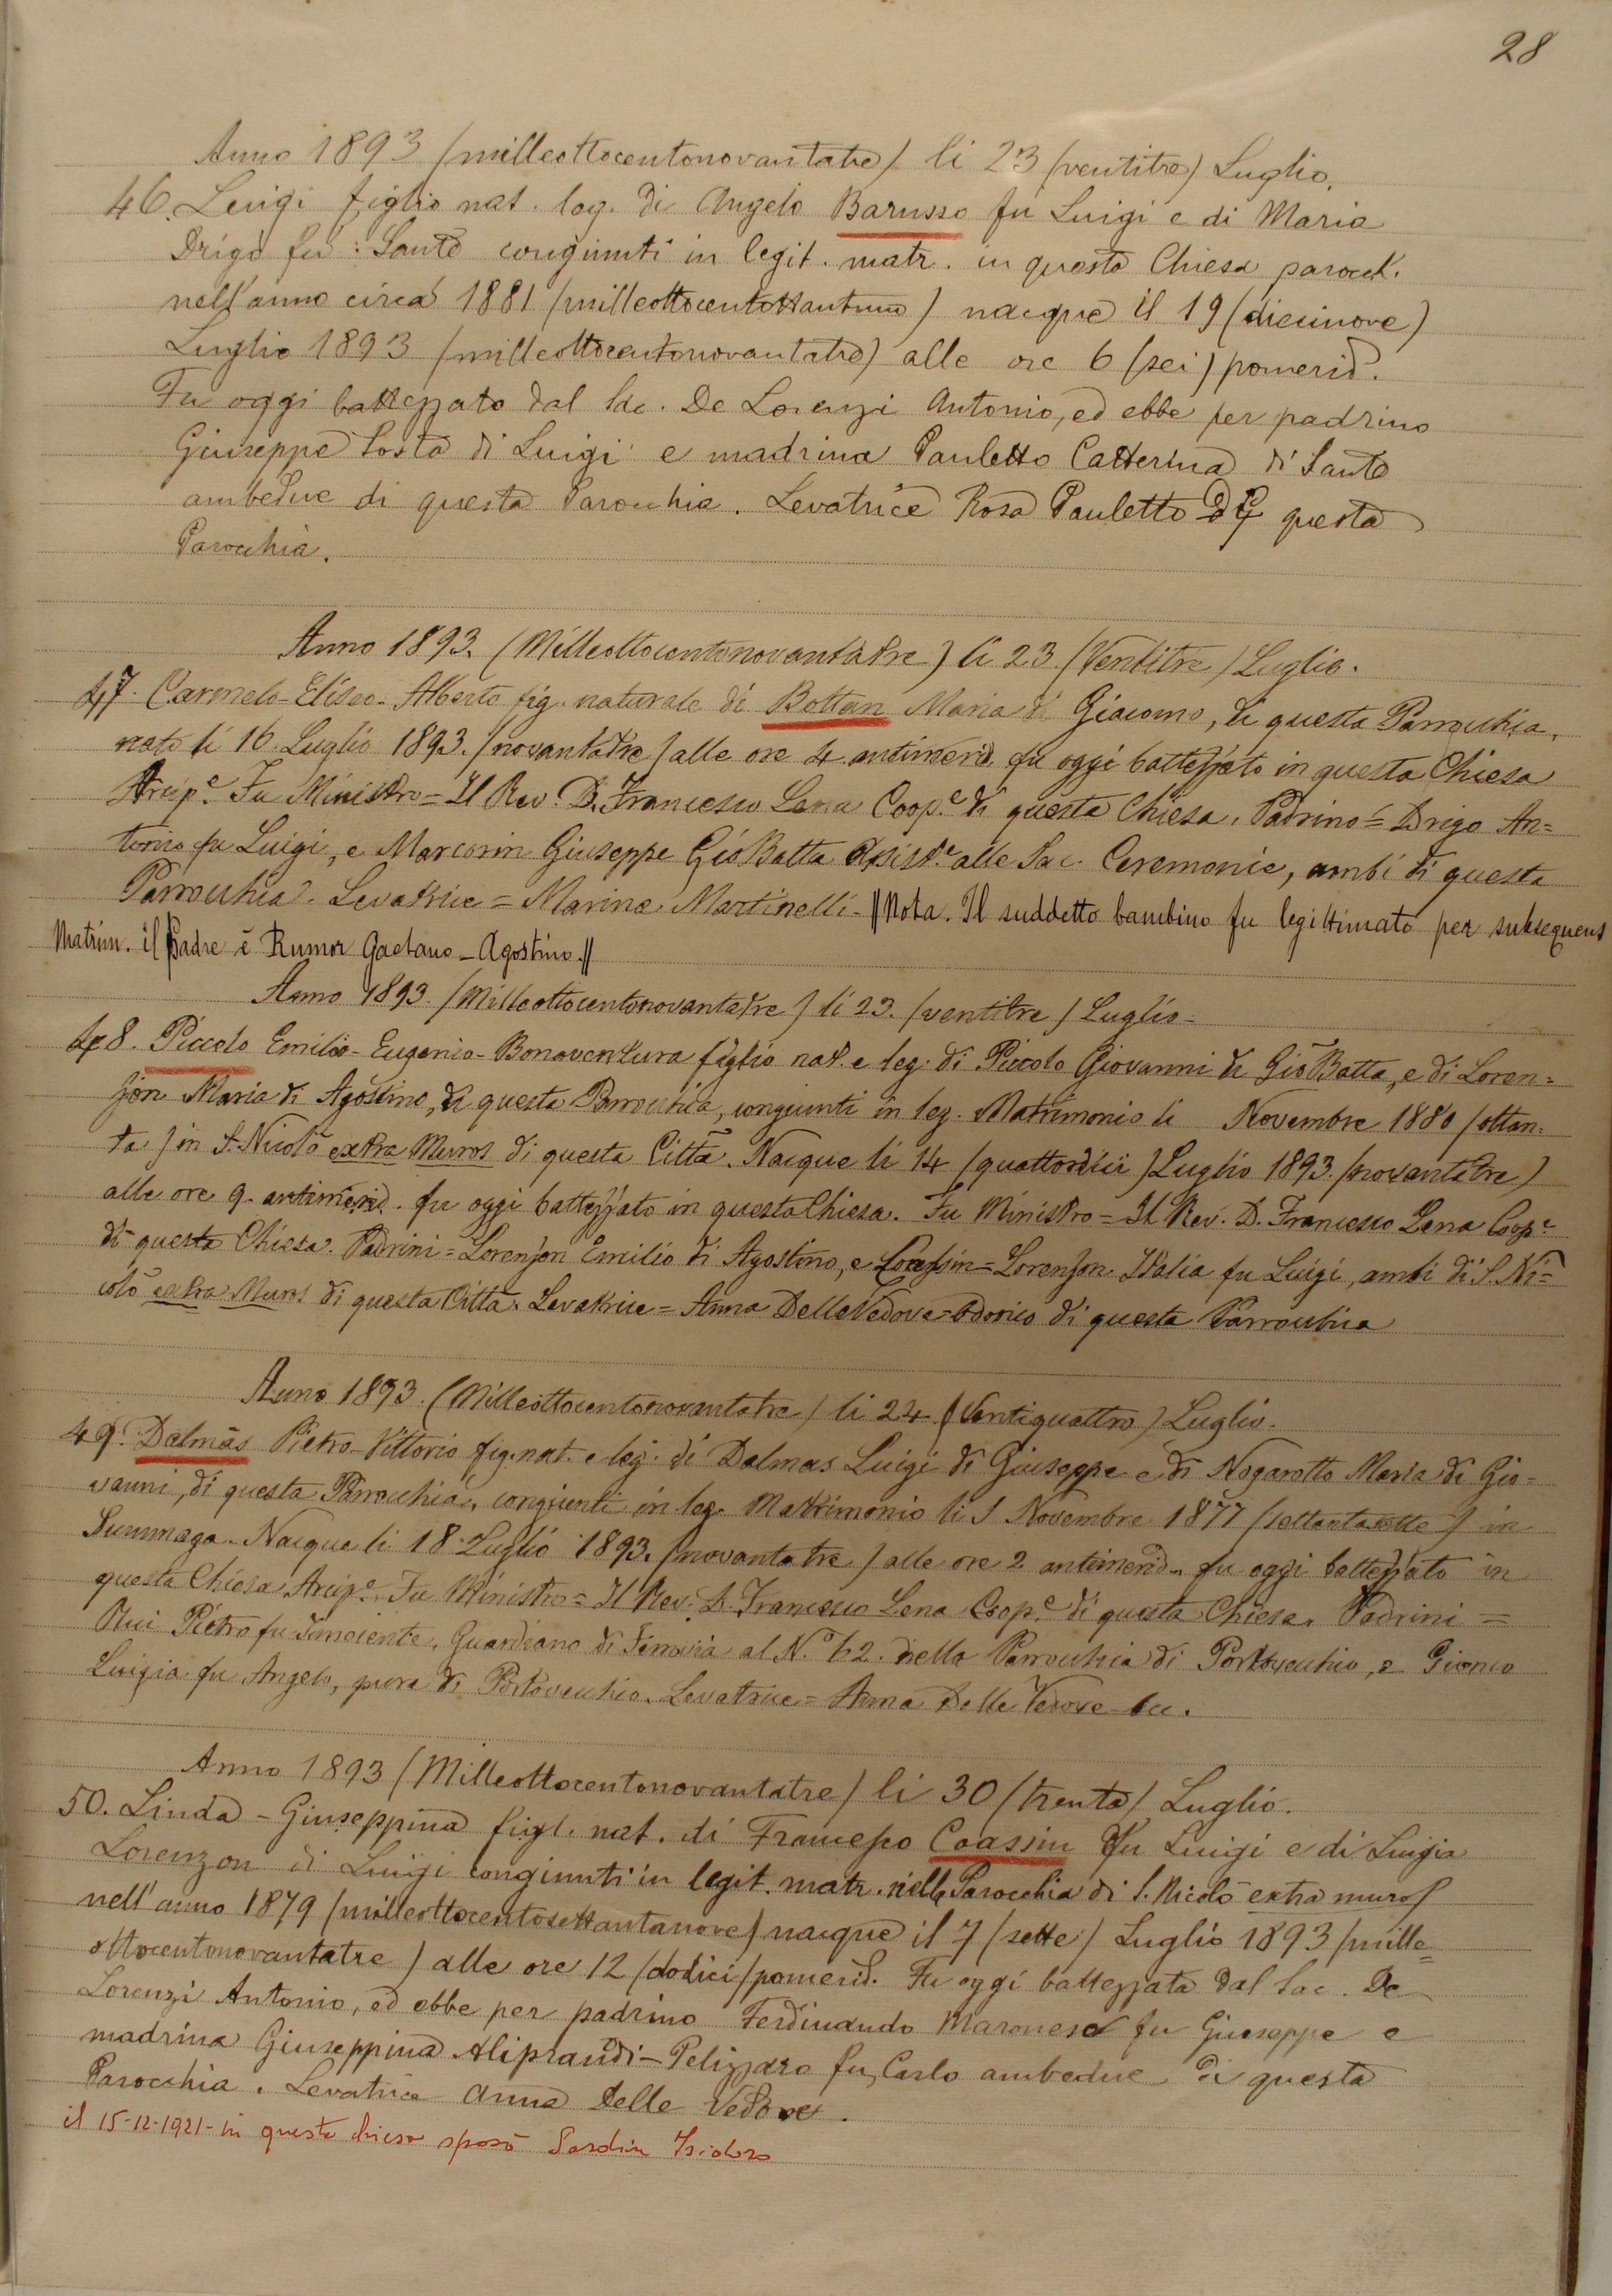 28
Anno 1893 (milleottocentonovantatre) li 23 (ventitre) Luglio.
46. Luigi figlio nat. leg. di Angelo Barusso fu Luigi e di Maria
Drigo fu Santo congiunti in legit. matr. in questa Chiesa paroch.
nell'anno circa 1881 (milleottocentottantuno) nacque il 19 (diecinove)
Luglio 1893 (milleottocentonovantatre) alle ore 6 (sei) pomerid.
Fu oggi battezzato dal Sac. De Lorenzi Antonio, ed ebbe per padrino
Giuseppe Costa di Luigi e madrina Pauletto Catterina di Santo
ambedue di questa Parocchia. Levatrice Rosa Pauletto questa
Parocchia.
Anno 1893. (Milleottocentonovantatre) li 23. (Ventitre) Luglio.
47. Carmelo-Eliseo-Alberto fig. naturale di Bottan Maria di Giacomo, di questa Parrocchia,
nato li 16 Luglio 1893. (novantatre) alle ore 4 antimerid. fu oggi battezzato in questa Chiesa
Arcip.e Fu Ministro = Il Rev. D. Francesco Lena Coop.e di questa Chiesa. Padrino = Drigo An=
tonio fu Luigi, e Marcorin Giuseppe GioBatta alle Sac. Ceremonie, ambi di questa
Parrocchia. Levatrice = Marina Martinelli - || Nota. Il suddetto bambino fu legittimato per subsequens
Matrim. il Padre è Rumor Gaetano - Agostino. ||
Anno 1893. (Milleottocentonovantatre) li 23. (ventitre) Luglio -
48. Piccolo Emilio-Eugenio-Bonaventura figlio nat. e leg. di Piccolo Giovanni di GioBatta, e di Loren=
zon Maria di Agostino, di questa Parrocchia, congiunti in leg. Matrimonio li Novembre 1880 (ottan=
ta) in S. Nicolò extra Muros di questa Città. Nacque li 14 (quattordici) Luglio 1893. (novantatre)
alle ore 9. antimerid. fu oggi battezzato in questa Chiesa. Fu Ministro = Il Rev. D. Francesco Lena Coop.e
di questa Chiesa. Padrini = Lorenzon Emilio di Agostino, e Coassin = Lorenzon Italia fu Luigi, ambi di S. Ni=
colò extra Muros di questa Città. Levatrice = Anna Delle Vedove = Odorico di questa Parrocchia
Anno 1893. (Milleottocentonovantatre) li 24 (Ventiquattro) Luglio.
49. Dalmas Pietro-Vittorio fig. nat. e leg. di Dalmas Luigi di Giuseppe e di Nogarotto Maria di Gio=
vanni, di questa Parrocchia, congiunti in leg. Matrimonio li Novembre 1877 (settantasette) in
Summaga. Nacque li 18. Luglio 1893. (novantatre) alle ore 2 antimerid. fu oggi battezzato in
questa Chiesa Arcip.e Fu Ministro = Il Rev. D. Francesco Lena Coop.e di questa Chiesa. Padrini =
Pietro fu Guardiano di Ferrovia al N.o 62. della Parrocchia di Portovecchio, e
Luigia fu Angelo, pure di Portovecchio. Levatrice = Anna Delle Vedove
Anno 1893 (Milleottocentonovantatre) li 30 (trenta) Luglio.
50. Linda - Giuseppina figl. nat. di Francesco Coassin fu Luigi e di Luigia
Lorenzon di Luigi congiunti in legit. matr. nella Parocchia di S. Nicolò extra muros
nell'anno 1879 (milleottocentosettantanove) nacque il 7 (sette) Luglio 1893 (mille=
ottocentonovantatre) alle ore 12 (dodici) pomerid. Fu oggi battezzata dal Sac. De
Lorenzi Antonio, ed ebbe per padrino Ferdinando Maronese fu Giuseppe e
madrina Giuseppina Aliprandi - Pelizzaro fu Carlo ambedue di questa
Parocchia. Levatrice Anna Delle Vedove.
il 15-12-1921 - in questa chiesa sposò Isidoro